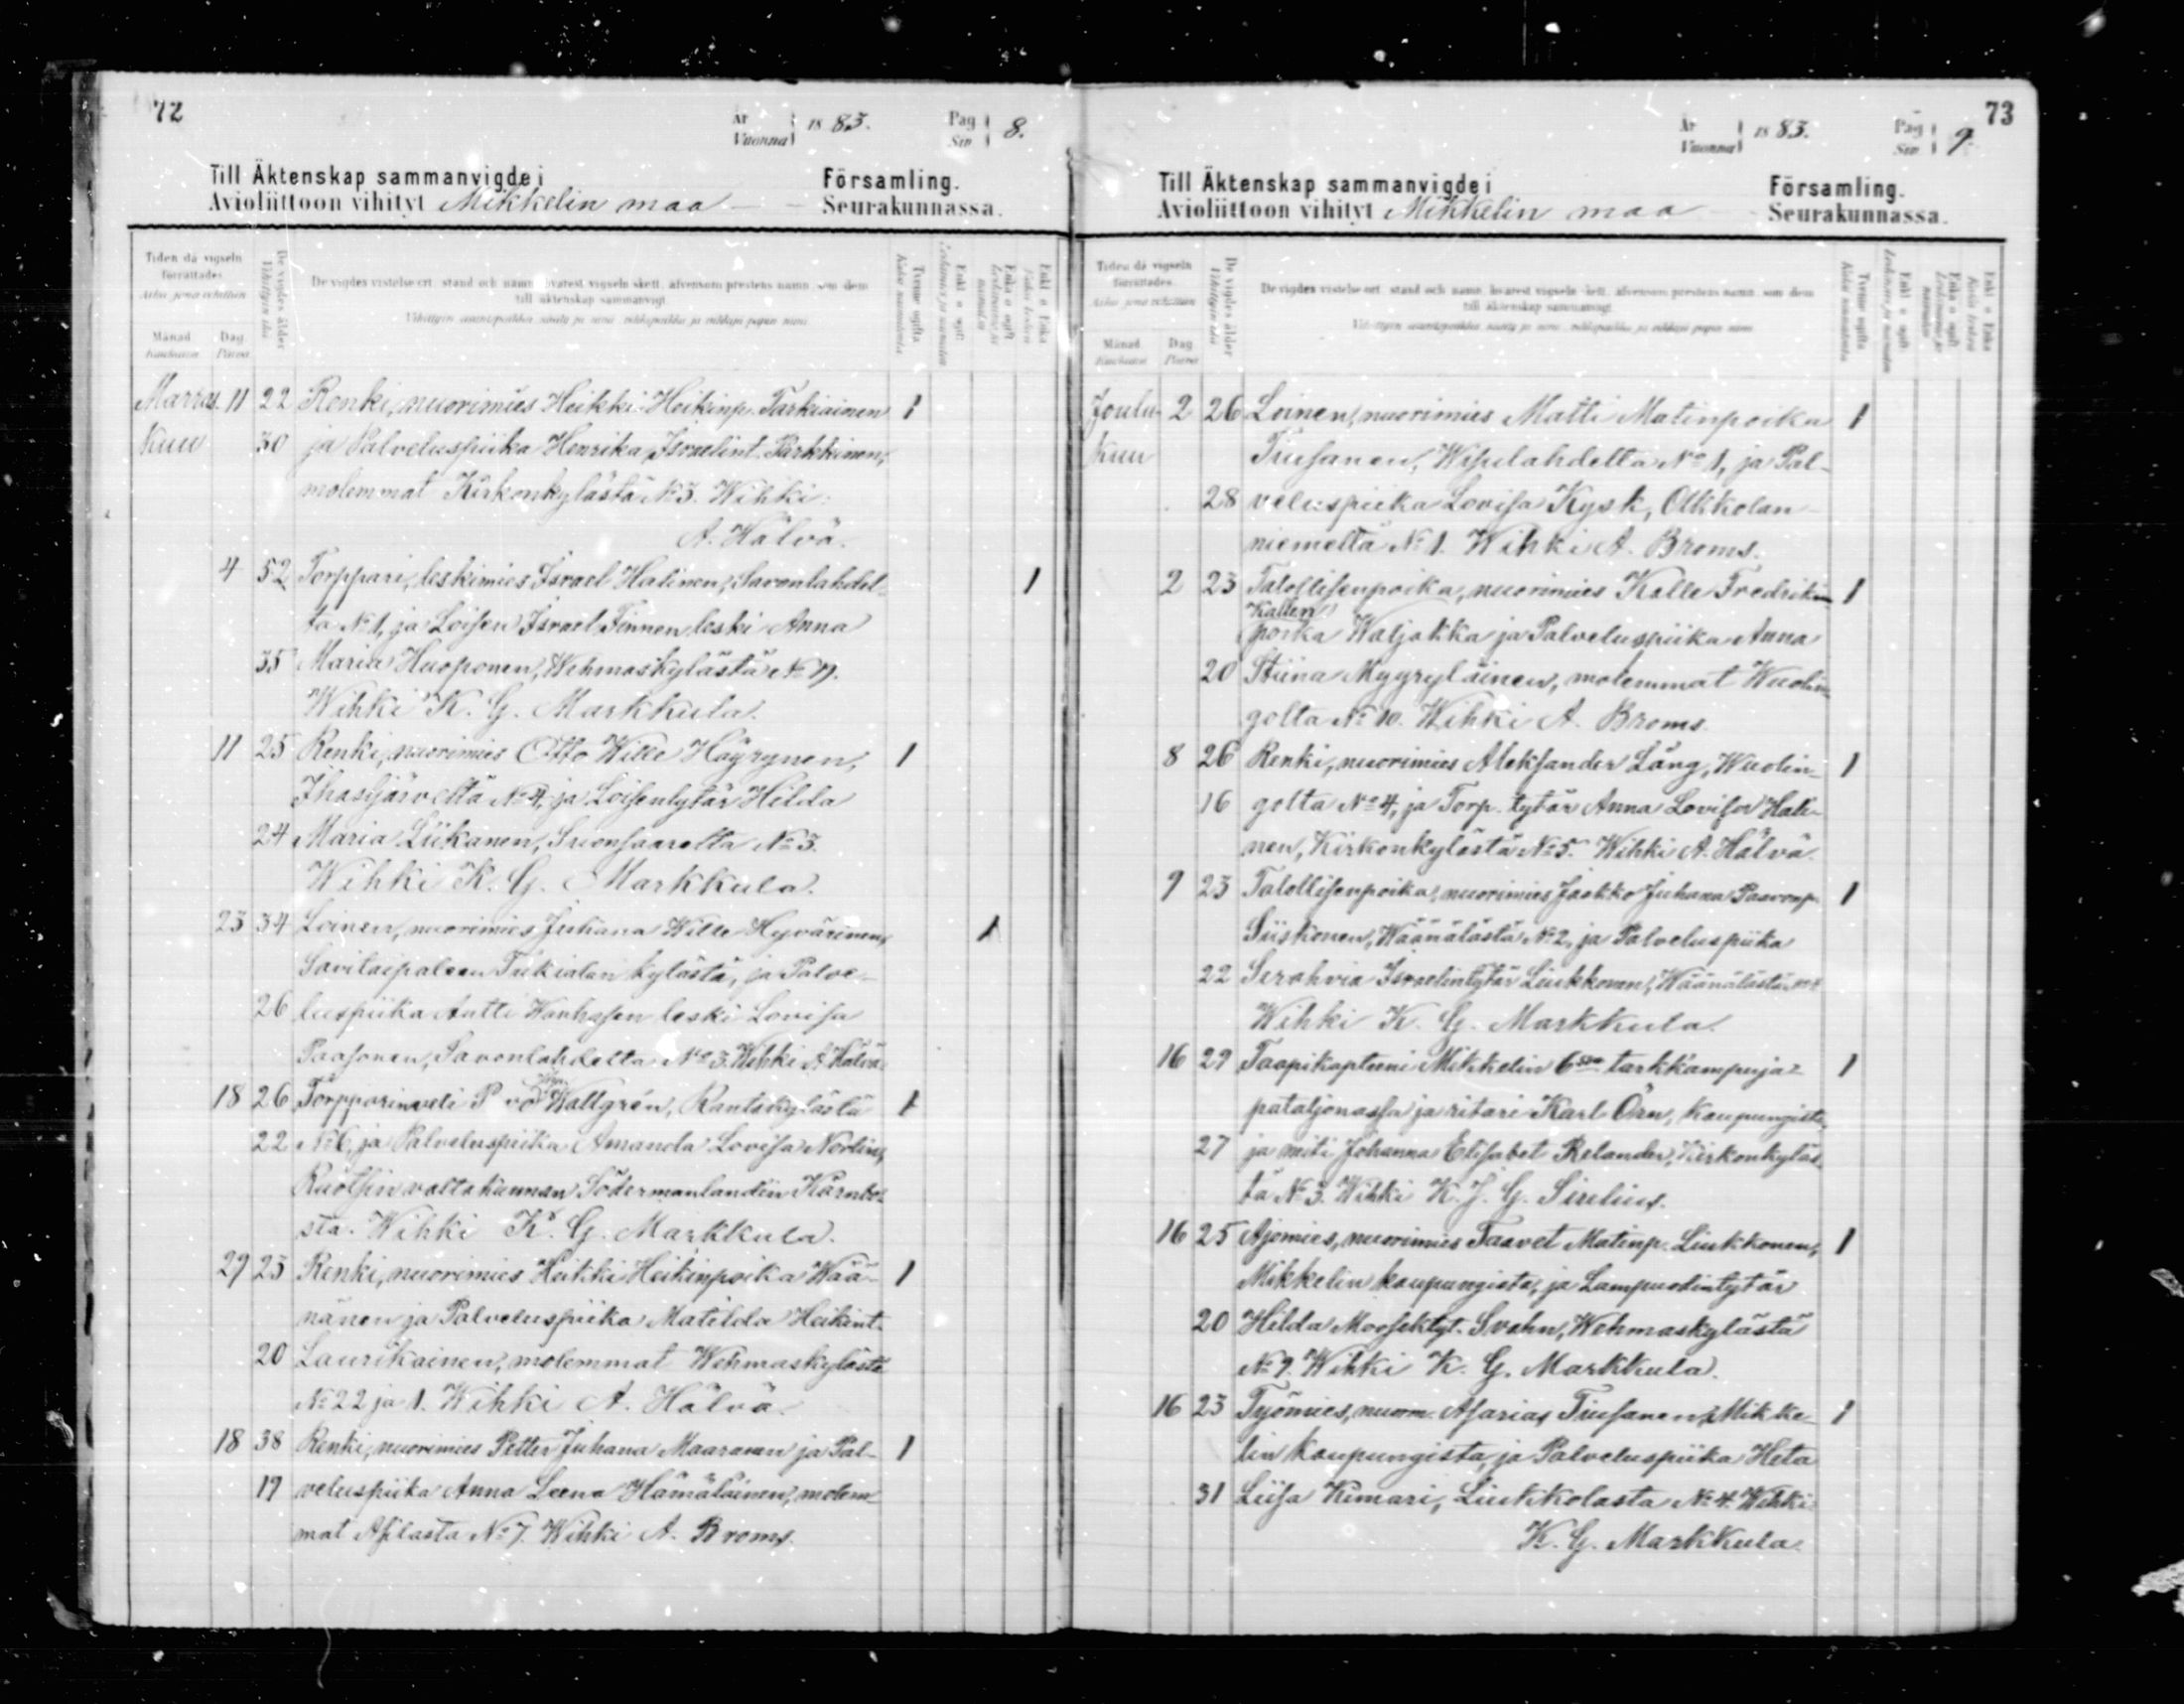 72
År
Vuonna
1883.
Pag
Siv
8.
Till Äktenskap sammanvigde i
Församling.
Avioliittoon vihityt Mikkelin maa
Seurakunnassa.
Tiden då vigseln
förrättades
Månad
Kuukausi
Dag
Päivä
De vigdes ålder
Vihittyin ikä
De vigdes vistelseort, stand och namn, hvarest vigseln skett, äfvensom prestens namn, som dem
till äktenskap sammanvigt
Marras 11 22 Renki, nuorimies Heikki Heikinp. Tarkiainen 1
Kuu 30 ja Palveluspiika Henrika Israelint. Parkkinen,
molemmat Kirkonkylästä No 3. Wihki
A. Hälvä.
4 52 Torppari, leskimies Israel Halinen, Savonlahdel- 1
ta No 1, ja Loisen Israel Tinnen leski Anna
35 Maria Huoponen, Wehmaskylästä No 19.
Wihki K. G. Markkula.
11 25 Renki, nuorimies Otto Wille Häyrynen, 1
Ihastjärveltä No 4, ja Loisentytär Hilda
24 Maria Liikanen, Suonsaarelta No 3.
Wihki K. G. Markkula.
23 34 Loinen, nuorimies Juhana Wille Hyvärinen, 1
Savitaipaleen kylästä, ja Palve-
26 luspiika Antti Wanhasen leski Lovisa
Paasonen, Savonlahdelta No 3. Wihki A. Hälvä.
18 26 Torpparinveli Wallgrén, Rantakylästä 1
22 No 6, ja Palveluspiika Amanda Lovisa Norlin,
Ruotsin valtakunnan Södermanlandin Kärnbo-
sta. Wihki K. G. Markkula.
29 23 Renki, nuorimies Heikki Heikinpoika Wää- 1
nänen ja Palveluspiika Matilda Heikint.
20 Laurikainen, molemmat Wehmaskylästä
No 22 ja 1. Wihki A. Hälvä.
18 38 Renki, nuorimies Petter Juhana Maaranen ja Pal- 1
19 veluspiika Anna Leena Hämäläinen, molem-
mat Asilasta No 7. Wihki A. Broms.
73
År
Vuonna
1883.
Pag
Siv
9.
Till Äktenskap sammanvigde i
Församling.
Avioliittoon vihityt Mikkelin maa
Seurakunnassa.
Tiden då vigseln
förrättades
Månad
Kuukausi
Dag
Päivä
De vigdes ålder
Vihittyin ikä
De vigdes vistelseort, stand och namn, hvarest vigseln skett, äfvensom prestens namn, som dem
till äktenskap sammanvigt
Joulu- 2 26 Loinen, nuorimies Matti Matinpoika 1
kuu Tiusanen, Wisulahdelta No 1, ja Pal-
28 veluspiika Lovisa Kysk, Olkkolan
niemeltä No 1. Wihki A. Broms.
2 23 Talollisenpoika, nuorimies Kalle Fredrik 1
Kallen
poika Waljakka ja Palveluspiika Anna
20 Stiina Myyryläinen, molemmat Wuolin-
golta No 10. Wihki A. Broms.
8 26 Renki, nuorimies Aleksander Lång, Wuolin- 1
16 golta No 4, ja Torp. tytär Anna Lovisa Hali-
nen, Kirkonkylästä No 5. Wihki A. Hälvä.
9 23 Talollisenpoika, nuorimies Jaakko Juhana Paavonp. 1
Siiskonen, Wäänälästä No 2, ja Palveluspiika
22 Serahvia Israelintytär Liukkonen, Wäänälästä
Wihki K. G. Markkula.
16 29 Taapikapteeni Mikkelin 6ssa tarkkampuja- 1
pataljonassa ja ritari Karl Örn, kaupungista,
27 ja neiti Johanna Elisabet Relander, Kirkonkyläs-
tä No 3. Wihki K. J. G. Sirelius.
16 25 Ajomies, nuorimies Taavet Matinp. Liukkonen, 1
Mikkelin kaupungista, ja Lampuodintytär
20 Hilda Moosektyt. Svahn, Wehmaskylästä
No 9. Wihki K. G. Markkula.
16 23 Työmies, nuorm. Asarias Tiusanen, Mikke- 1
lin kaupungista, ja Palveluspiika Heta
31 Liisa Kinnari, Liukkolasta No 4. Wihki
K. G. Markkula.